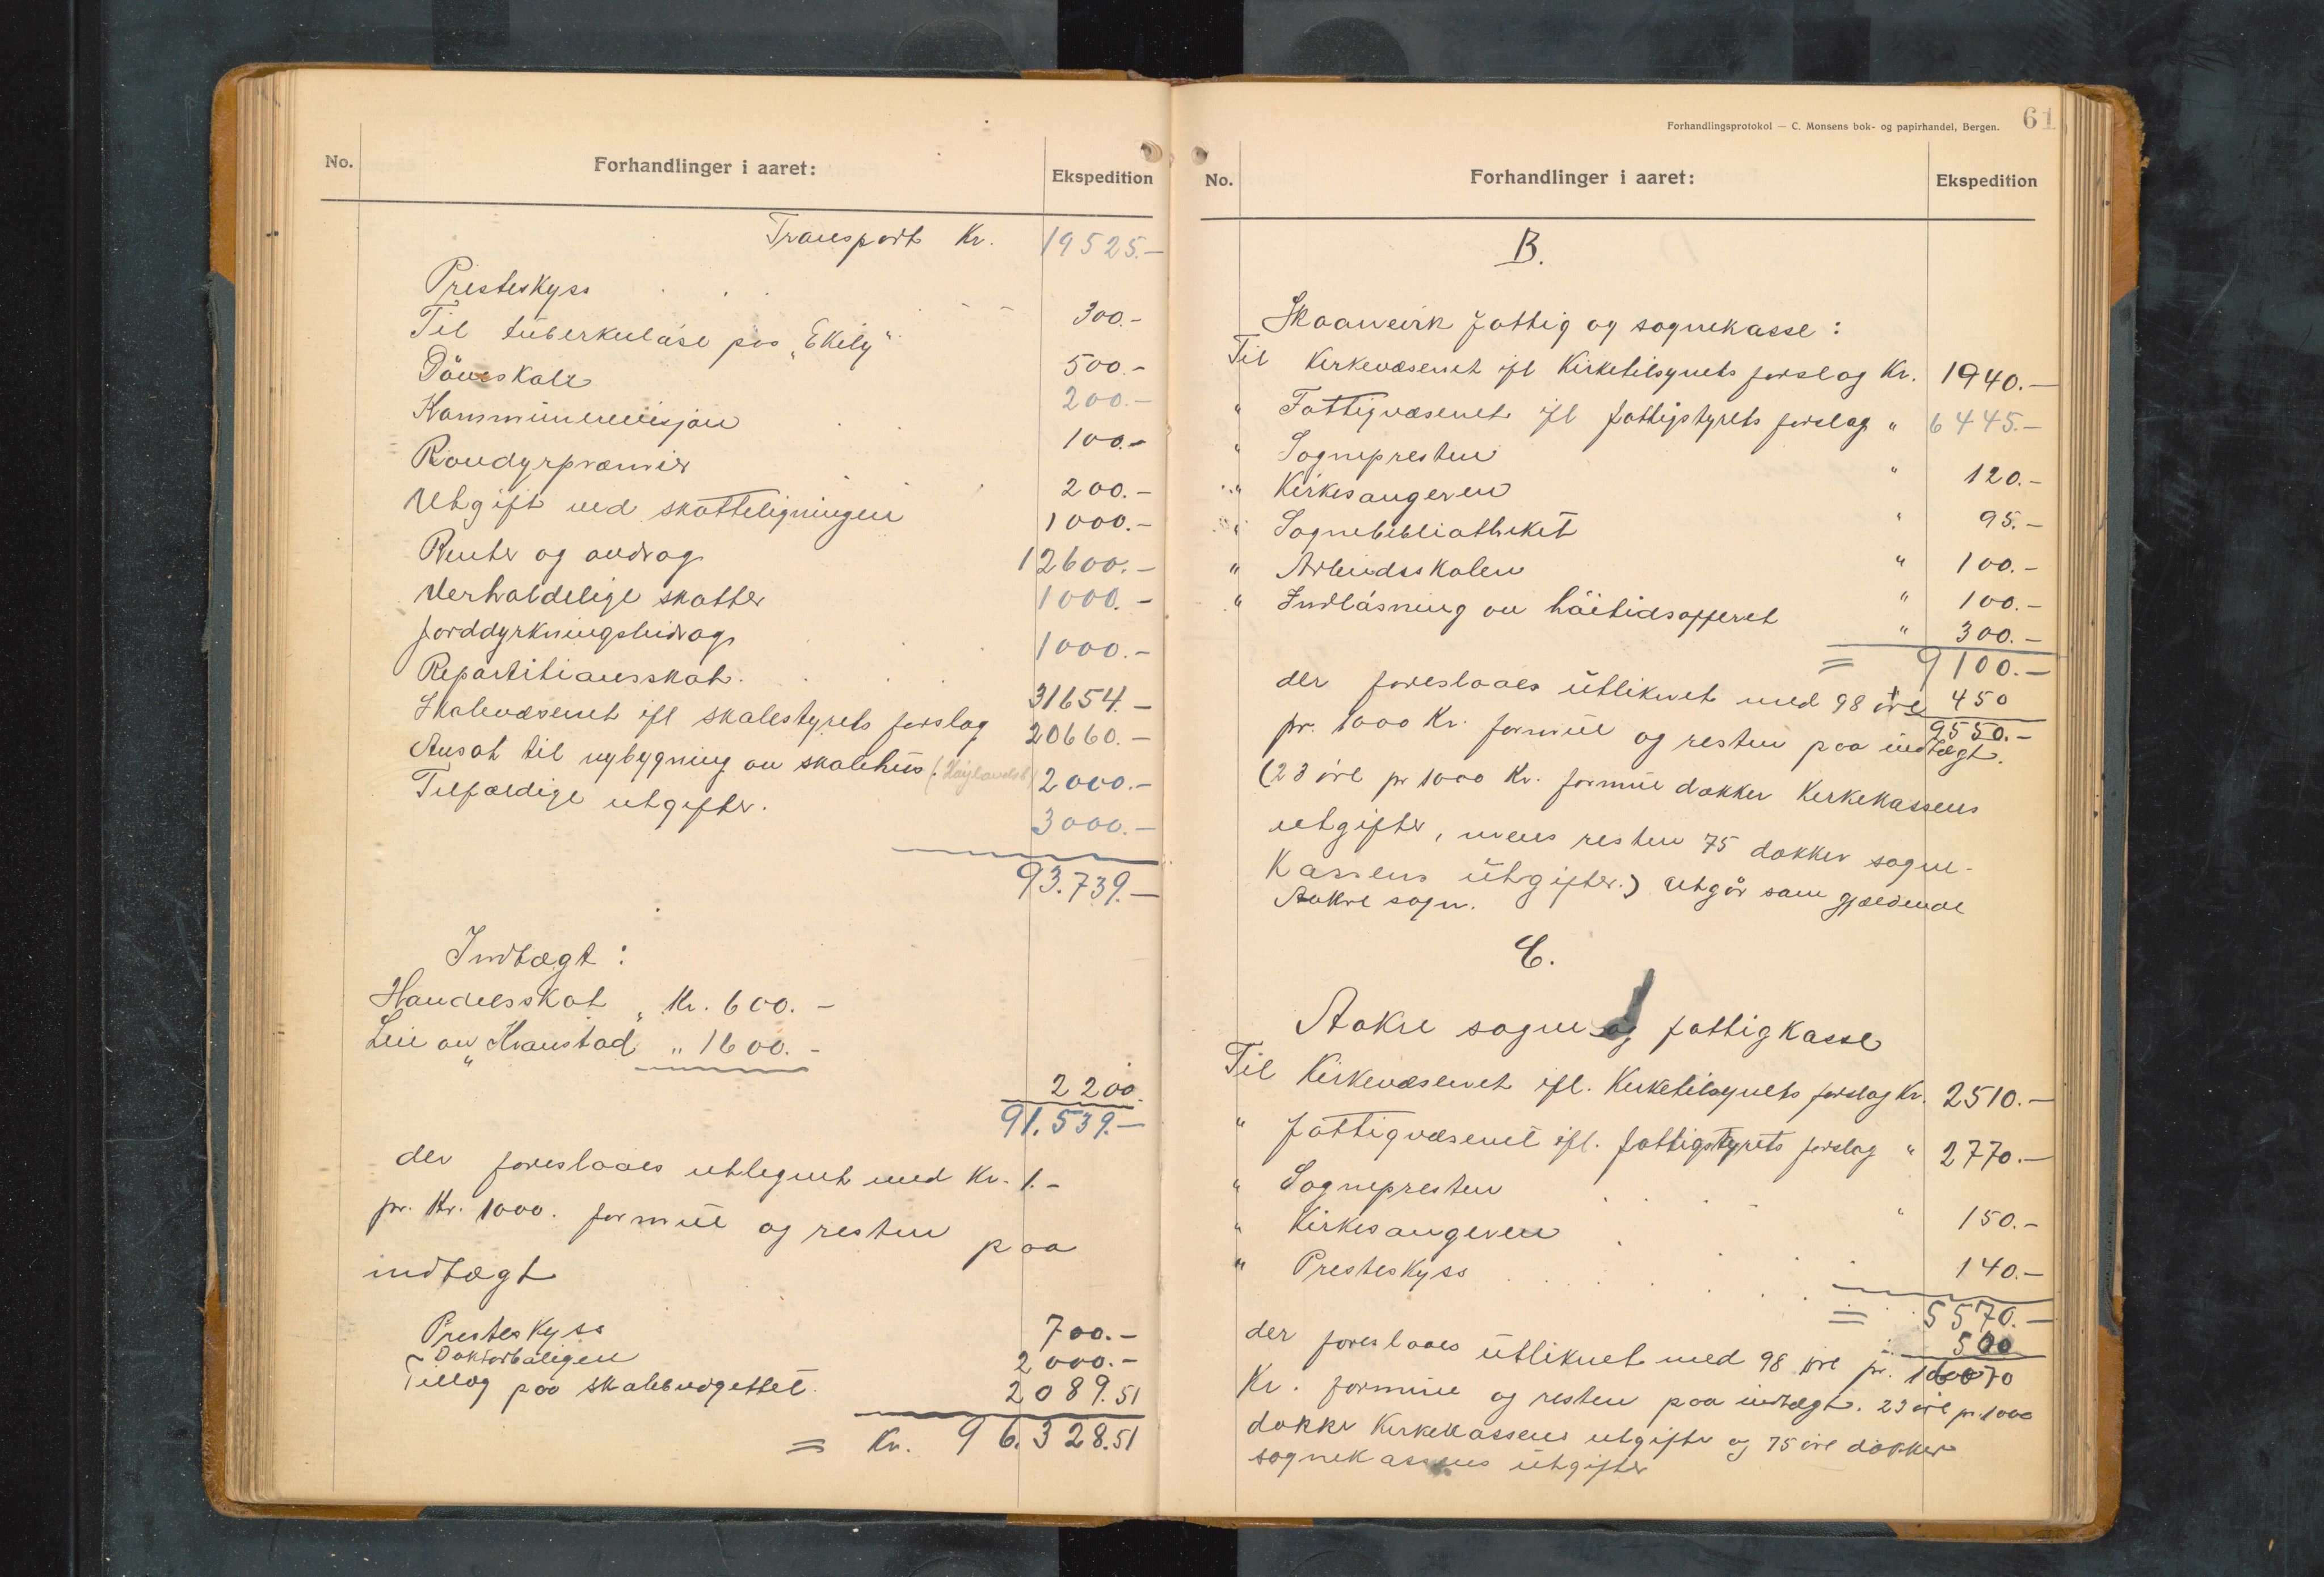 No.
Forhandlinger i aaret:
Ekspedition
Transport Kr. 19525.-
Presteskyss 300.-
Til tuberkuløse paa "Ekely" 500.-
Døveskole 200.-
Kommunerevisjon 100.-
Rovdyrpræmier 200.-
Utgift ved skatteligningen 1000.-
Renter og avdrag 12600.-
Uerholdelige skatter 1000.-
Jorddyrkningsbidrag 1000.-
Repartitionsskat 31654.-
Skolevæsenet ifl skolestyrets forslag 20660.-
Ansat til nybygning av skolehus (Høylandsb) 2000.-
Tilfældige utgifter. 3000.-
93.739.-
Indtægt:
Handelsskat " Kr. 600.-
Leie av "Kvanstad " 1600.-
2200.
91.539.-
der foreslaaes utlignet med Kr. 1.-
pr. Kr. 1000. formue og resten paa
indtægt
Presteskyss 700.-
Doktorboligen 2000.-
Tillæg paa skolebudgettet. 2089.51
= Kr. 96.328.51
Forhandlingsprotokol — C. Monsens bok- og papirhandel, Bergen.
61
No.
Forhandlinger i aaret:
Ekspedition
B.
Skaanevik fattig og sognekasse:
Til Kirkevæsenet ifl Kirketilsynets forslag Kr. 1940.-
" Fattigvæsenet ifl fattigstyrets forslag " 6445.-
" Sognepresten " 120.-
" Kirkesangeren " 95.-
" Sognebibliotheket " 100.-
" Arbeidsskolen " 100.-
" Indløsning av høitidsofferet " 300.-
= 9100.-
+ 450
9550.-
der foreslaaes utliknet med 98 øre
pr. 1000 Kr. formue og resten paa indtægt.
(23 øre pr 1000 Kr. formue dækker Kirkekassens
utgifter, mens resten 75 dækker sogne-
kassens utgifter.) Utgår som gjældende
Aakre sogn.
C.
Aakre sogne og fattigkasse
Til Kirkevæsenet ifl. Kirketilsynets forslag Kr. 2510.-
" fattigvæsenet ifl. fattigstyrets forslag " 2770.-
" Sognepresten " 150.-
" Kirkesangeren 140.-
" Presteskyss
= 5570.-
500
6070
der foreslaaes utliknet med 98 øre pr. 1000
Kr. formue og resten paa indtægt. 23 øre pr 1000
dække Kirkekassens utgifter og 75 øre dækker
sognekassens utgifter